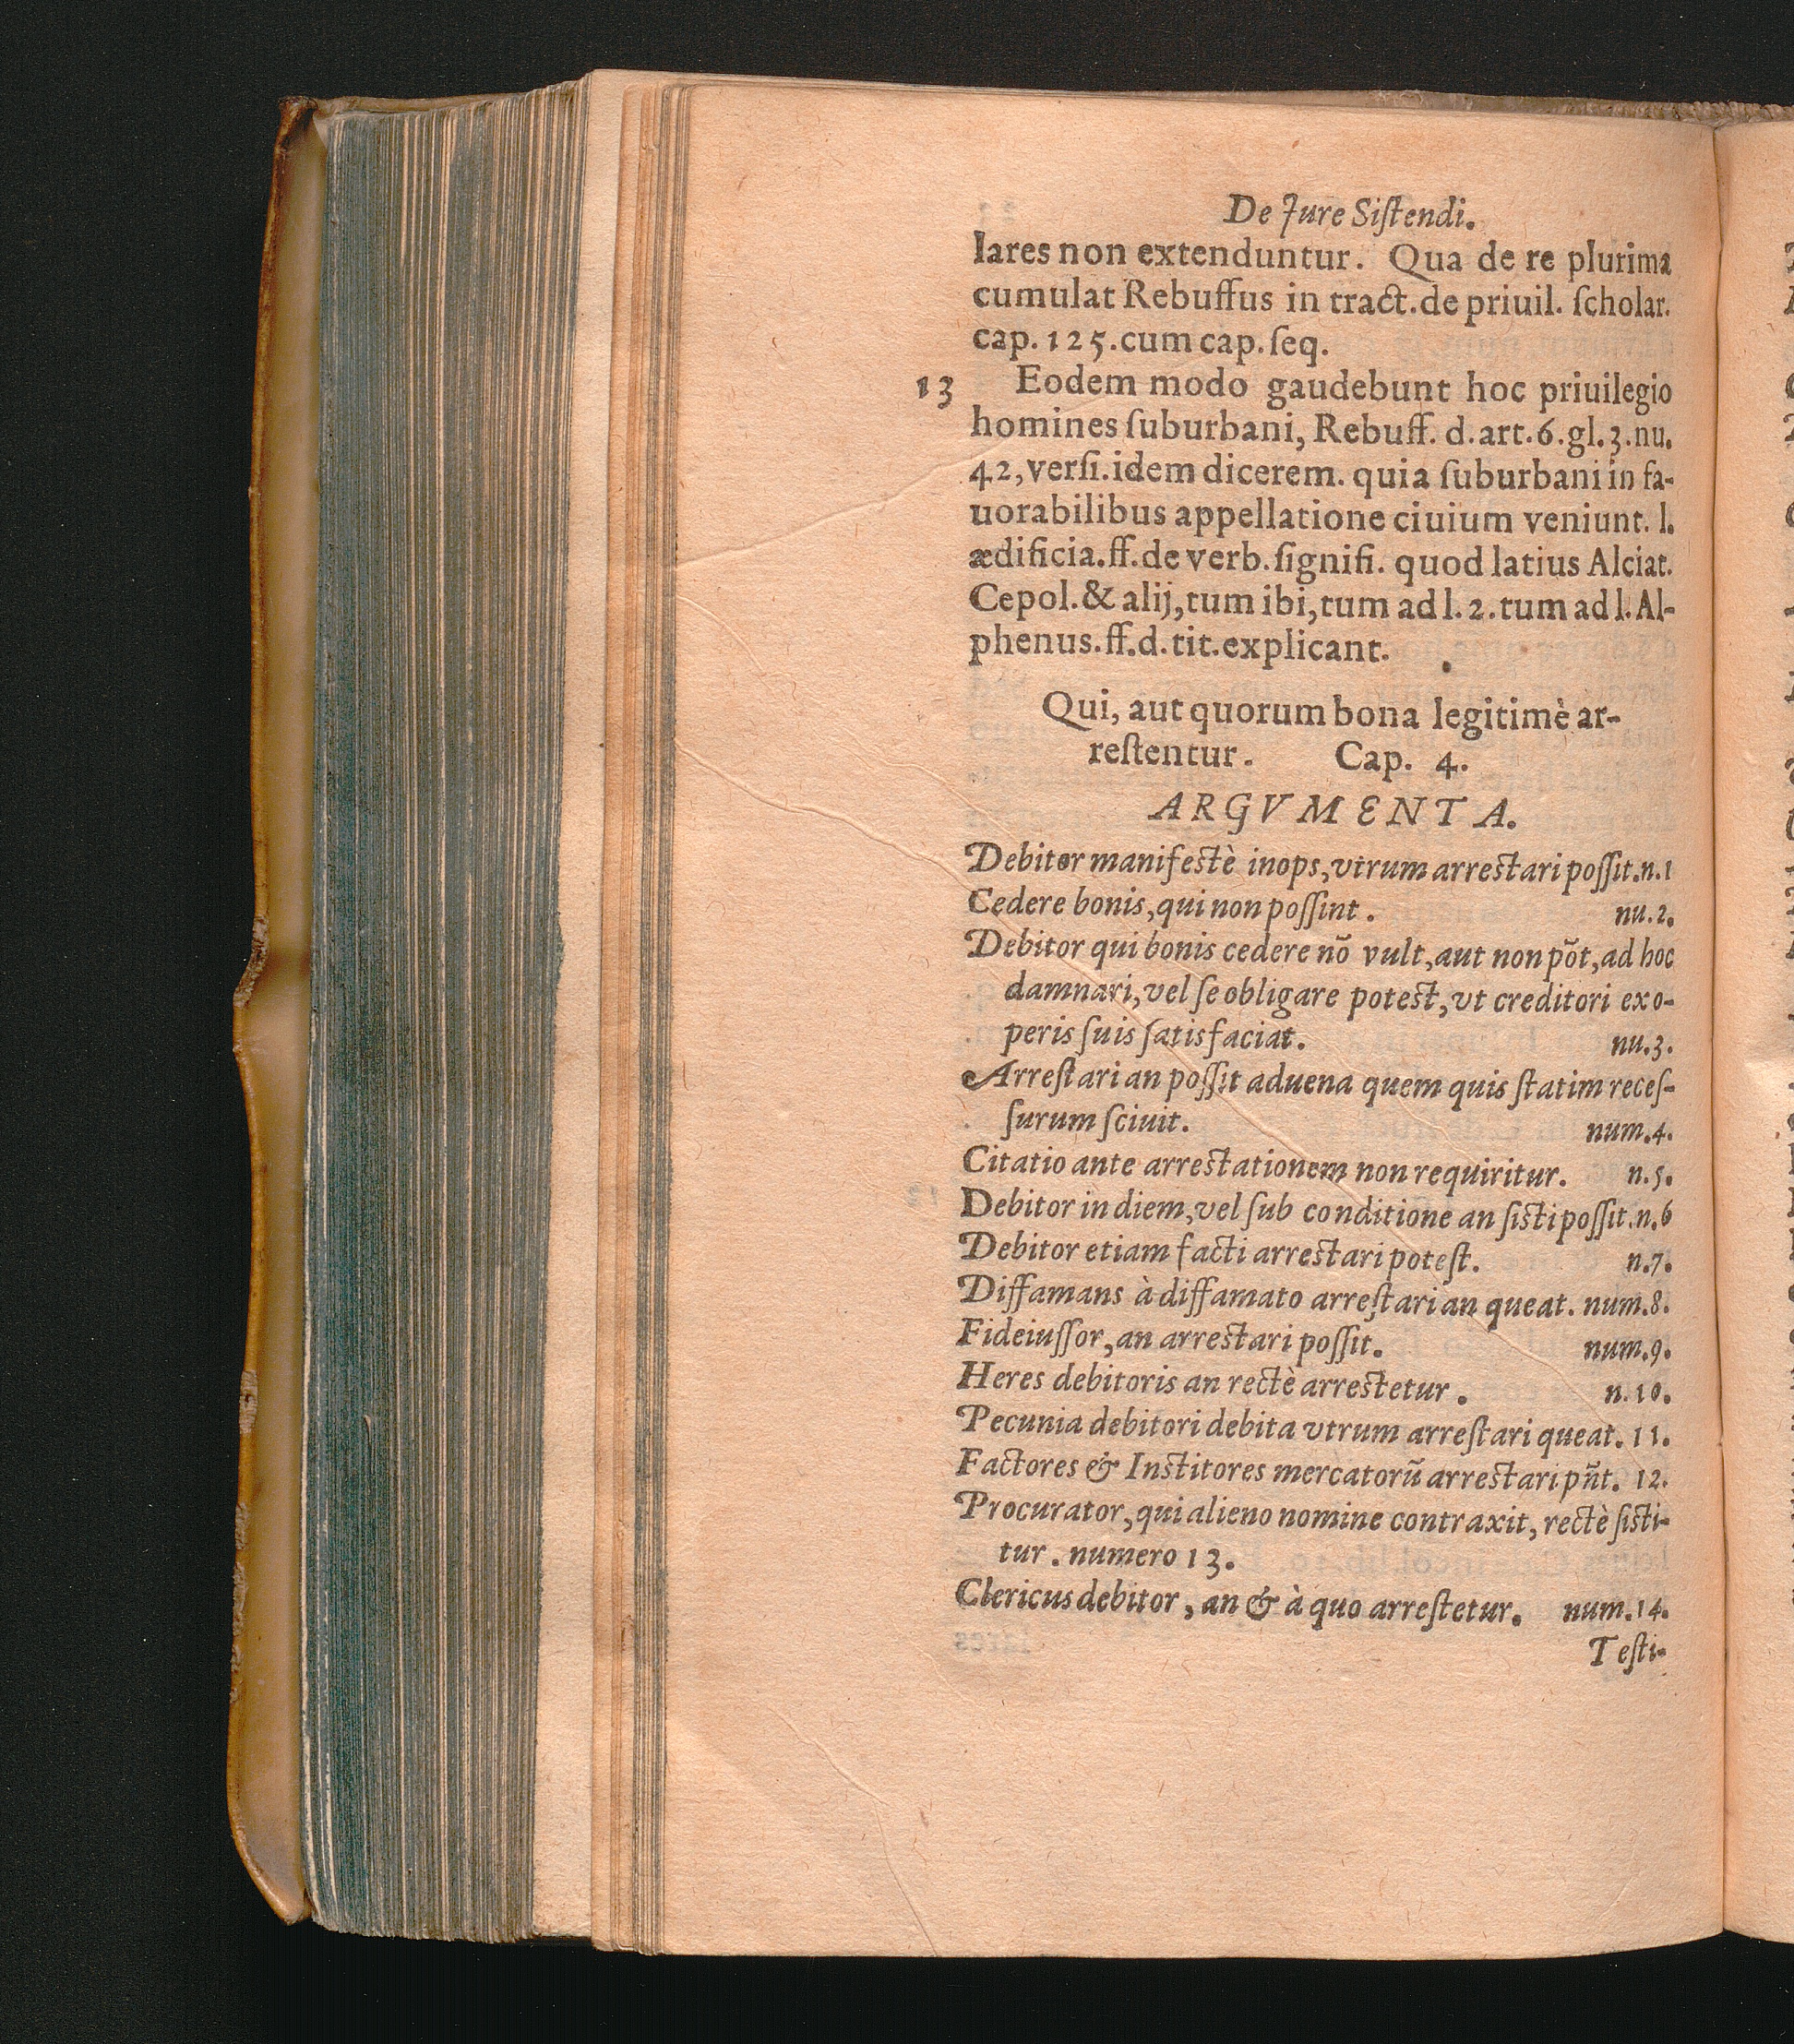 De Jure Siſtendi.
lares non extenduntur. Qua de re plurima
cumulat Rebuffus in tract. de priuil. ſcholar.
cap. 125. cum cap. ſeq.
13 Eodem modo gaudebunt hoc priuilegio
homines ſuburbani, Rebuff. d. art. 6. gl. 3. nu.
42, verſi. idem dicerem. quia ſuburbani in fa-
uorabilibus appellatione ciuium veniunt. l.
ædificia. ff. de verb. ſignifi. quod latius Alciat.
Cepol. & alij, tum ibi, tum ad l. 2. tum ad l. Al-
phenus. ff. d. tit. explicant.
Qui, aut quorum bona legitimè ar-
reſtentur. Cap. 4.
ARGVMENTA.
Debitor manifeſtè inops, vtrum arreſtari poſſit. n. 1
Cedere bonis, qui non poſſint. nu. 2.
Debitor qui bonis cedere nõ vult, aut non põt, ad hoc
damnari, vel ſe obligare poteſt, vt creditori exo-
peris ſuis ſatisfaciat. nu. 3.
Arreſtari an poſſit aduena quem quis ſtatim receſ-
ſurum ſciuit. num. 4.
Citatio ante arreſtationem non requiritur. n. 5.
Debitor in diem, vel ſub conditione an ſiſti poſſit. n. 6
Debitor etiam facti arreſtari poteſt. n. 7.
Diffamans à diffamato arreſtari an queat. num. 8.
Fideiuſſor, an arreſtari poſſit. num. 9.
Heres debitoris an rectè arreſtetur. n. 10.
Pecunia debitori debita vtrum arreſtari queat. 11.
Factores & Inſtitores mercatorũ arreſtari pñt. 12.
Procurator, qui alieno nomine contraxit, rectè ſiſti-
tur. numero 13.
Clericus debitor, an & à quo arreſtetur. num. 14.
Teſti-